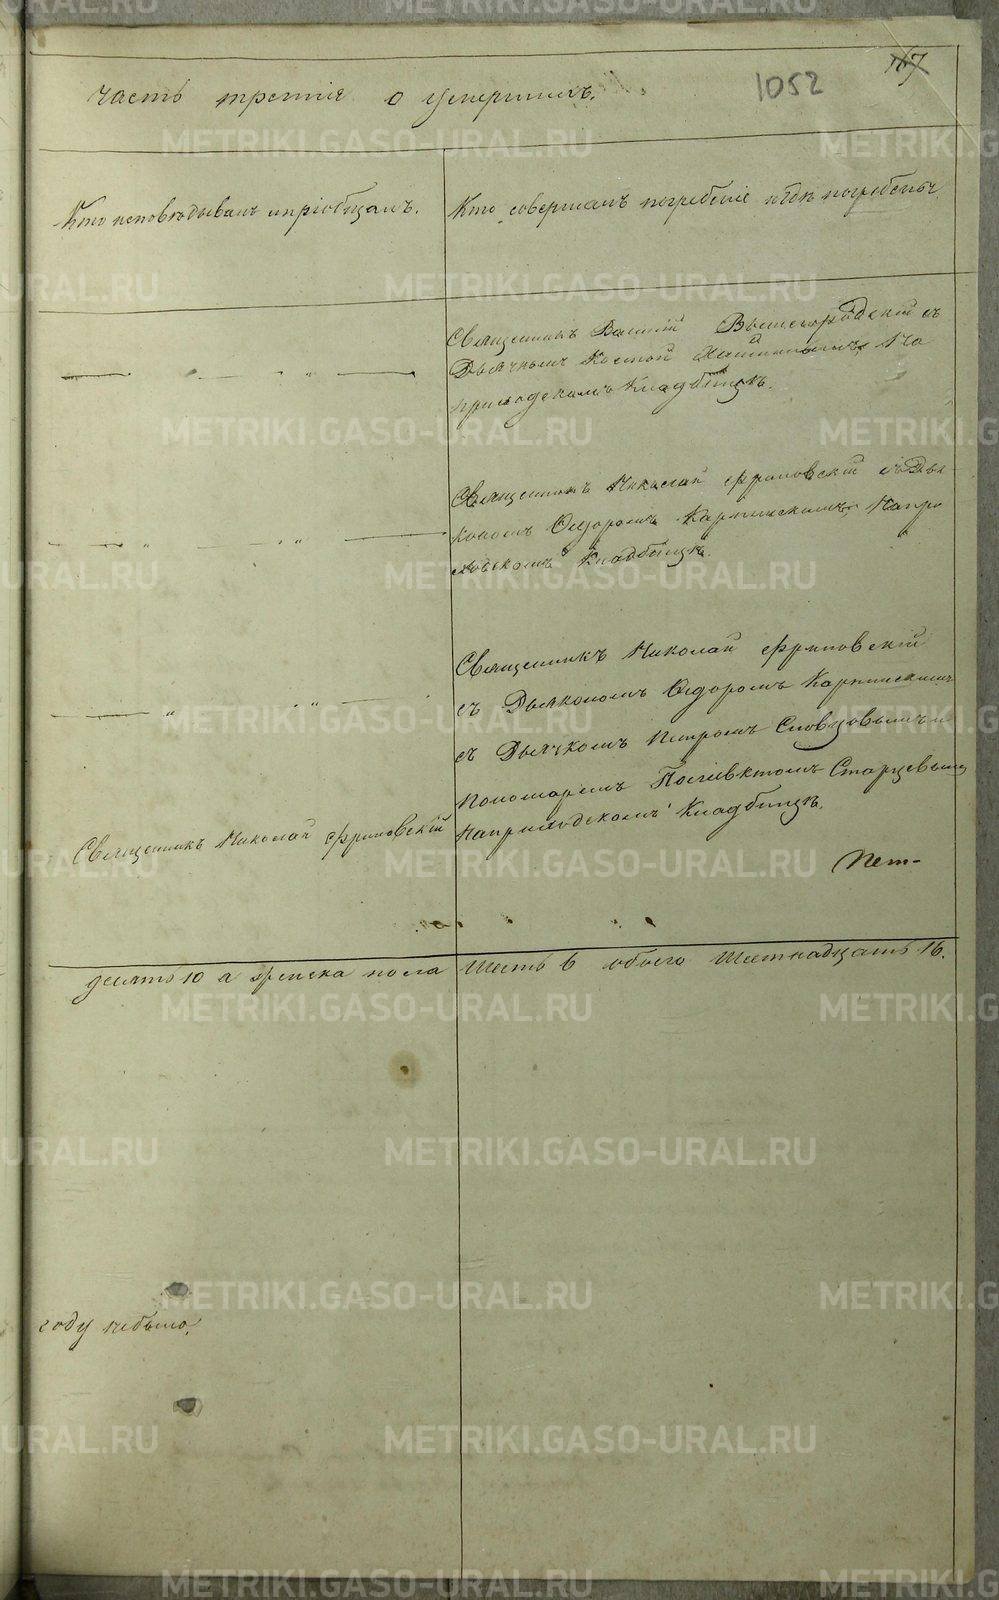 167
1052
Часть третія о умершихъ.
Кто исповѣдывалъ и пріобщалъ.
Кто совершалъ погребеніе и гдѣ погребены
Священникъ Василій Вышегородскій съ
Дьячкомъ Космой На
приходскомъ Кладбищѣ.
Священникъ Николай Фряновскій съ Дья-
кономъ Ѳедоромъ Карпинскимъ, На при
ходскомъ Кладбищѣ.
Священникъ Николай Фряновскій
съ Дьякономъ Ѳедоромъ Карпинскимъ
съ Дьячкомъ Петромъ Словцовымъ и
пономаремъ Поліевктомъ Старцевымъ
На приходскомъ Кладбищѣ.
Священникъ Николай Фряновскій
десять 10 а женска пола шесть 6 обоего Шестнадцать 16.
году небыло.
METRIKI.GASO-URAL.RU